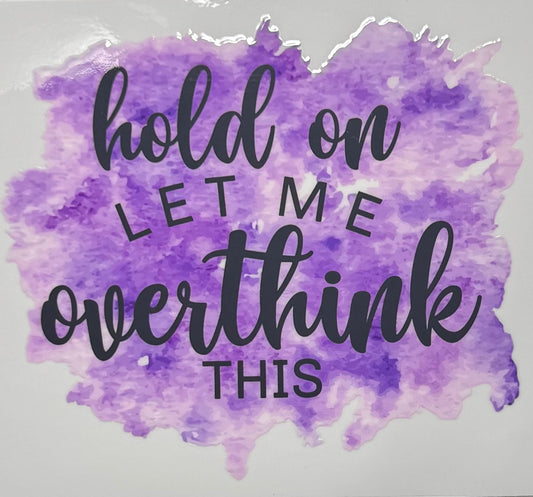 hold on
LET ME
overthink
THIS